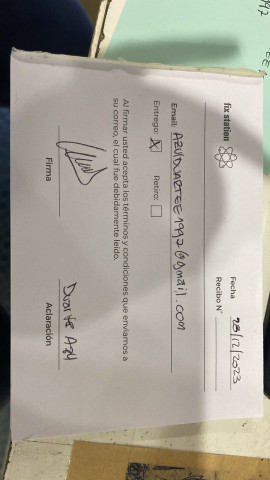 fix station
Fecha 28/12/2023
Recibo N°
Email: AZUDUARTEE1997@gmail.com
Entrego: X Retiro:
Al firmar usted acepta los términos y condiciones que enviamos a
su correo, el cual fue debidamente leído.
Duarte Azul
Firma Aclaración